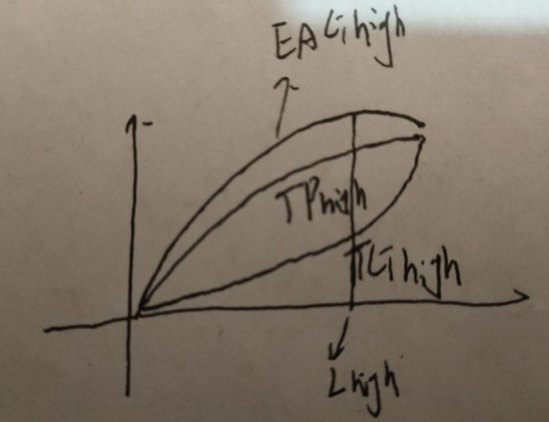 EACi,high
TPhigh
TCi,high
Lhigh